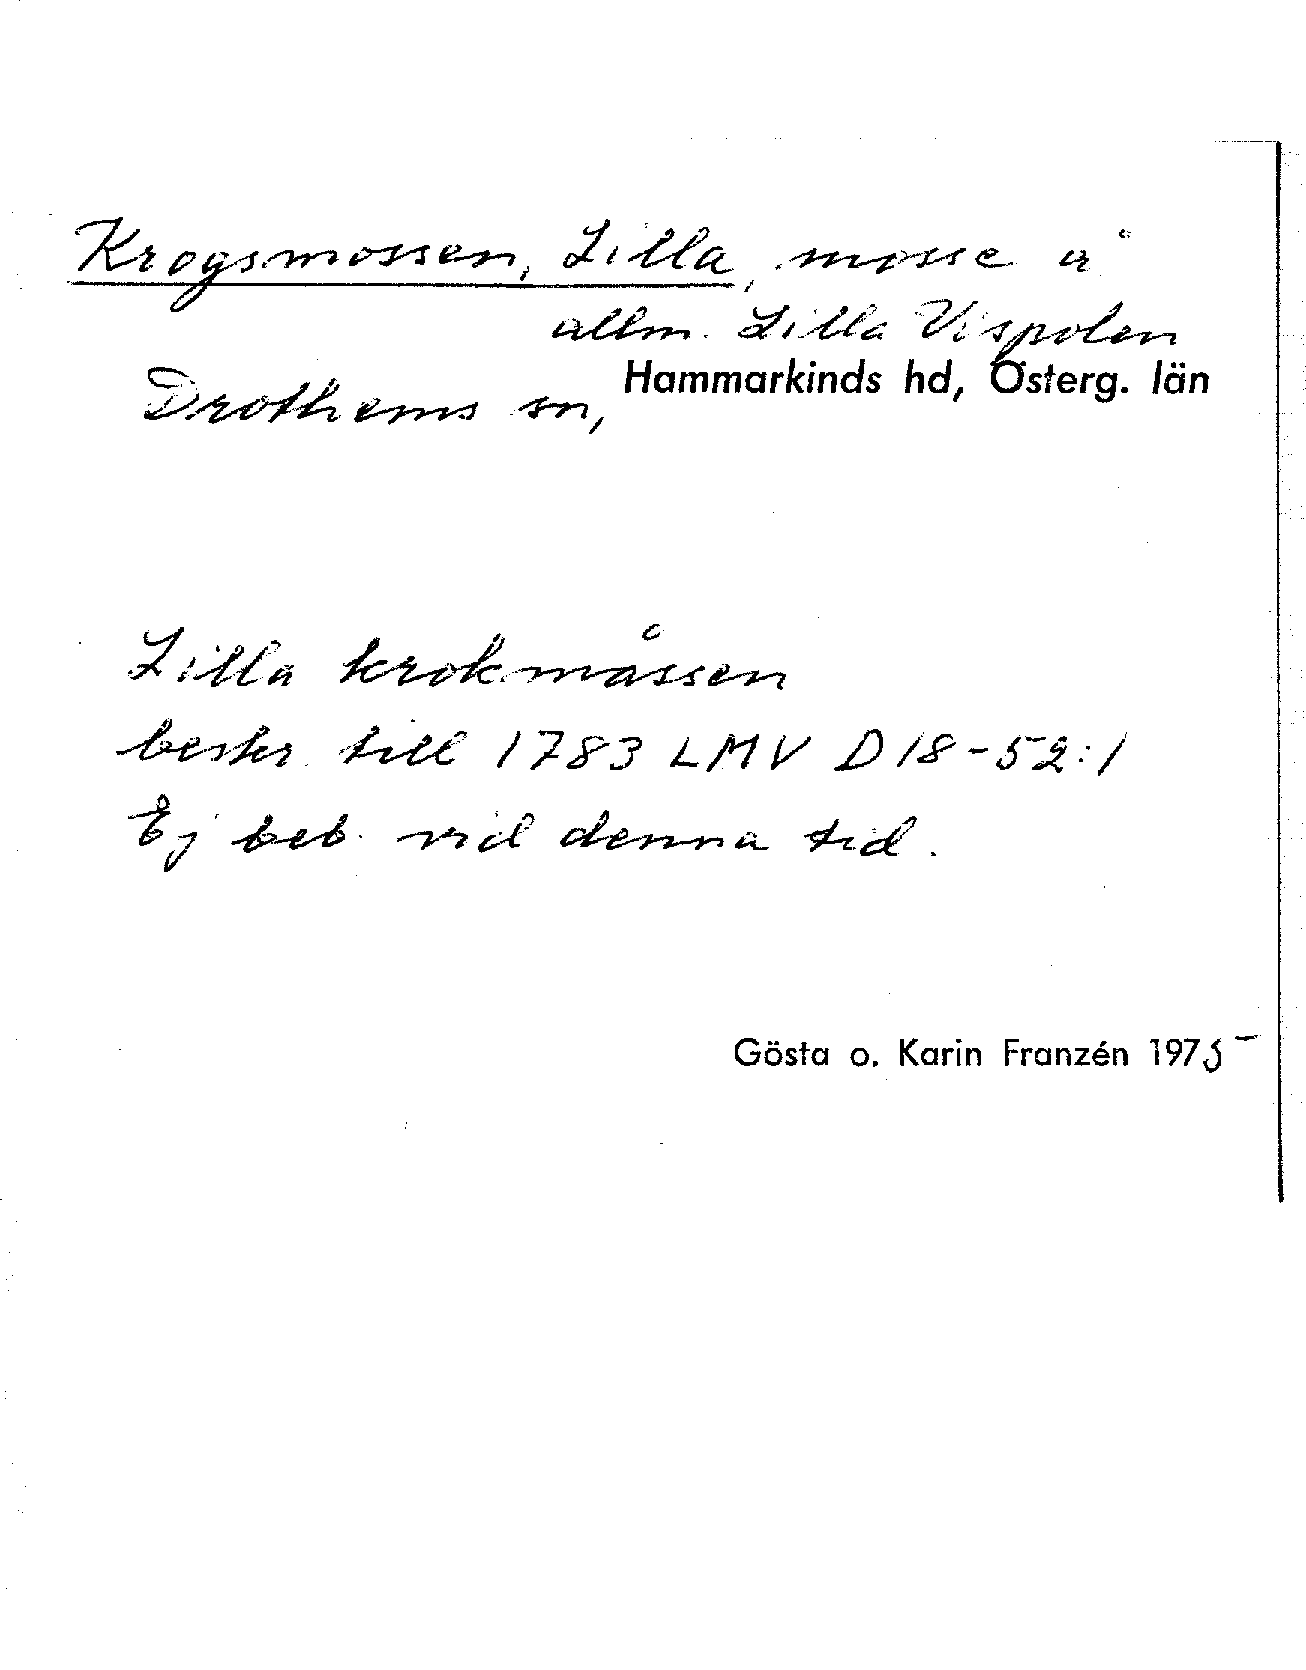 Krogsmossen, Lilla, mosse å
allm. Lilla Vispolen
Drothems sn, Hammarkinds hd, Österg. län
Lilla krokmåssen
beskr. till 1783 LMV D 18-52:1
Ej beb. vid denna tid.
Gösta o. Karin Franzén 1975